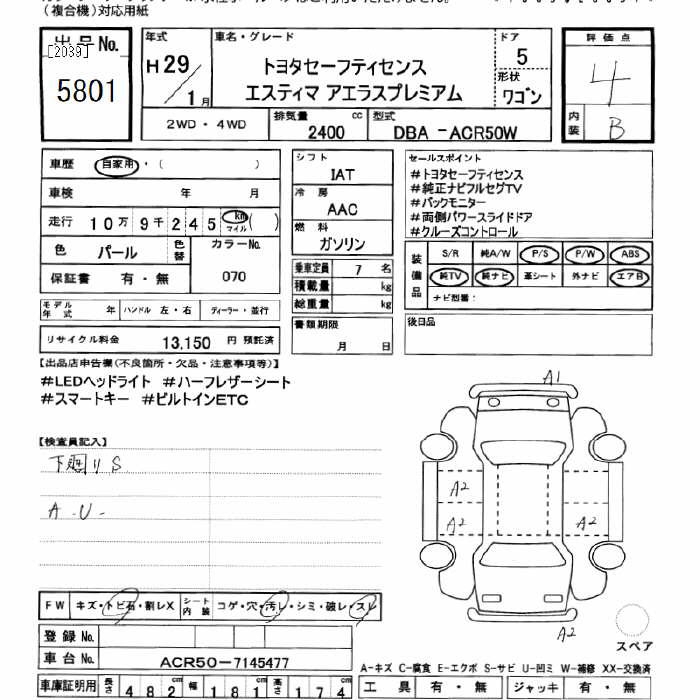 (複合機)対応用紙
出品No.
[2039]
5801
年式
H29/1月
車名・グレード
トヨタセーフティセンス
エスティマ アエラスプレミアム
ドア
5
形状
ワゴン
評価点
4
内装
B
2WD・4WD
排気量
2400
cc
型式
DBA-ACR50W
車歴
自家用・( )
車検 年 月
走行 10万9千245 km マイル ( )
色
パール
色替
カラーNo.
070
保証書 有・無
シフト
IAT
冷房
AAC
燃料
ガソリン
乗車定員 7 名
積載量 kg
総重量 kg
書類期限
月 日
セールスポイント
#トヨタセーフティセンス
#純正ナビフルセグTV
#バックモニター
#両側パワースライドドア
#クルーズコントロール
装備品
S/R 純A/W P/S P/W ABS
純TV 純ナビ 革シート 外ナビ エアB
ナビ型番:
モデル年式 年 ハンドル 左・右 ディーラー・並行
リサイクル料金 13,150 円 預託済
後日品
【出品店申告欄(不良箇所・欠品・注意事項等)】
#LEDヘッドライト #ハーフレザーシート
#スマートキー #ビルトインETC
【検査員記入】
下廻りS
A-U-
A1
A2
A2
A2
A2
スペア
FW キズ・トビ石・割レX シート内装 コゲ・穴・汚レ・シミ・破レ・スレ
登録No.
車台No. ACR50-7145477
A-キズ C-腐食 E-エクボ S-サビ U-凹ミ W-補修 XX-交換済
車庫証明用 長さ 482 cm 幅 181 cm 高さ 174 cm
工具 有・無 ジャッキ 有・無